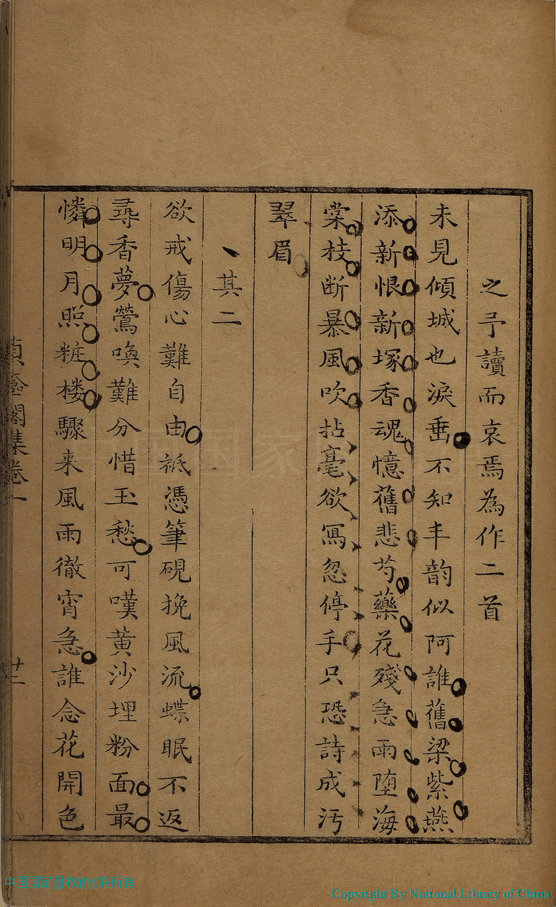 之予讀而哀焉為作二首
未見傾城也淚垂不知丰韵似阿誰舊梁紫燕
添新恨新塚香魂憶舊悲芍藥花殘急雨墮海
棠枝斷暴風吹拈毫欲寫忽停手只恐詩成污
翠眉
其二
欲戒傷心難自由祇憑筆硯挽風流蝶眠不返
尋香夢鶯喚難分惜玉愁可嘆黃沙埋粉面最
憐明月照粧楼驟来風雨徹宵急誰念花開色
閣集卷一
Copyright By National Library of China